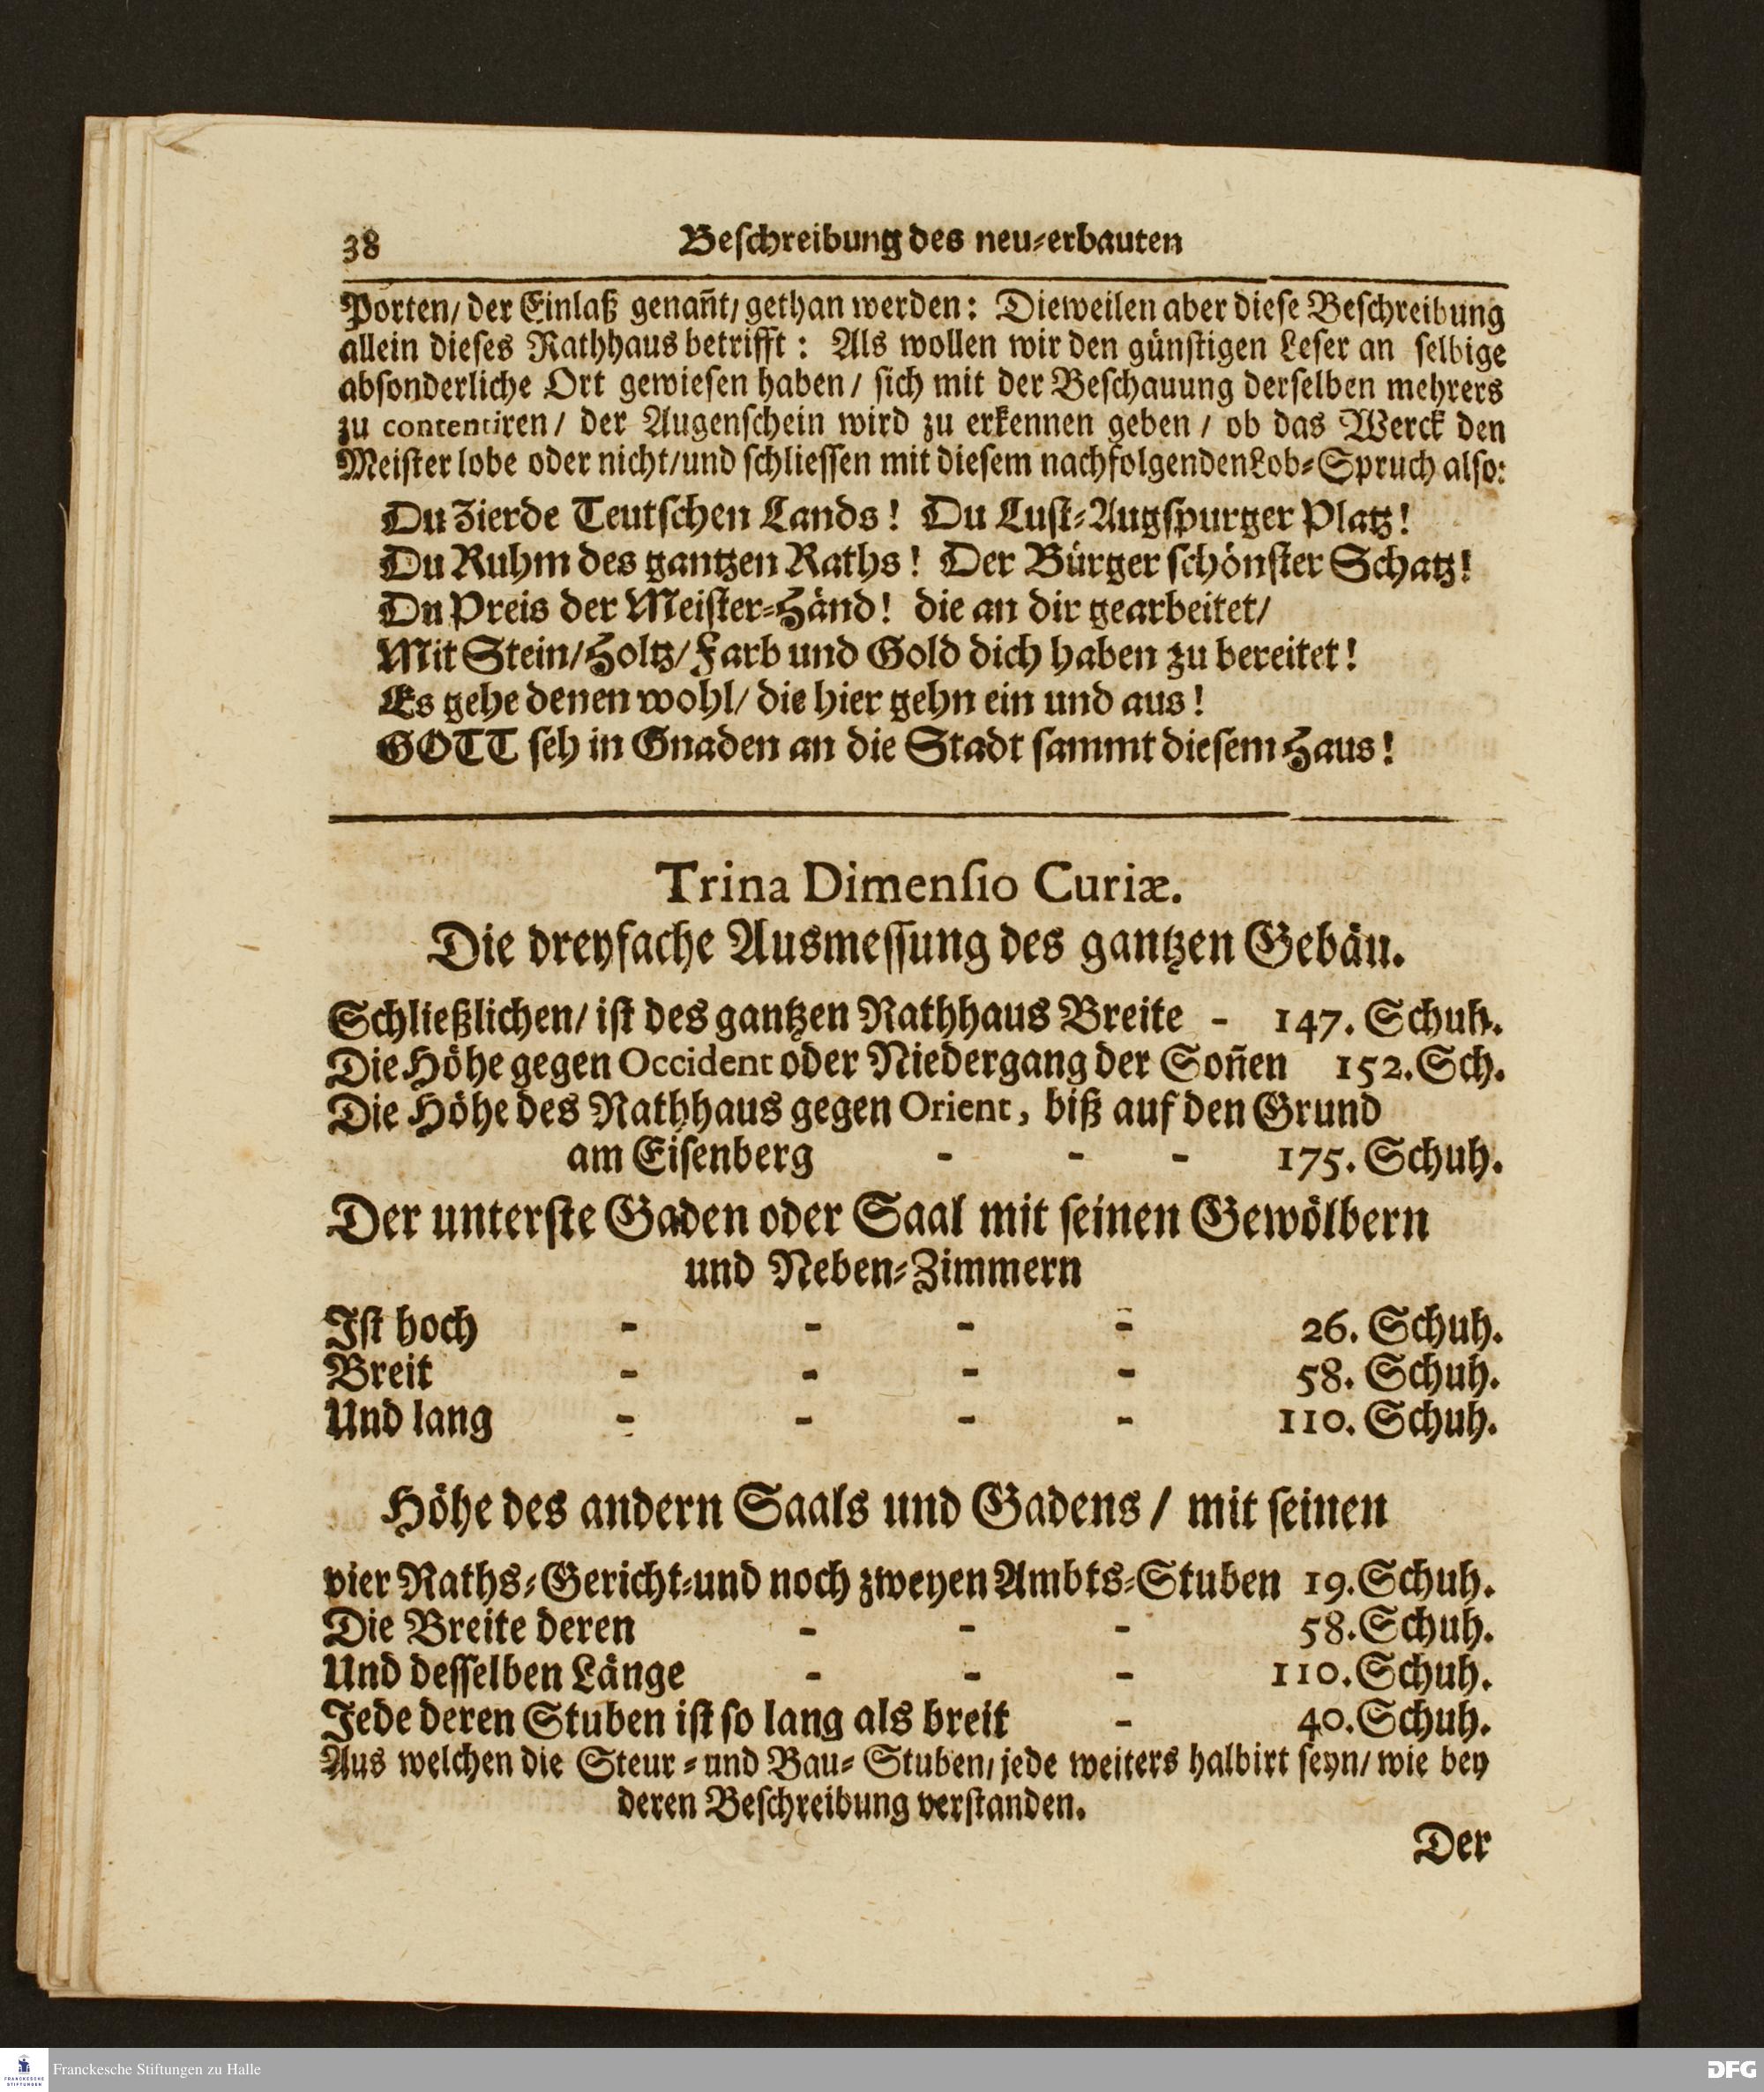 38 Beſchreibung des neu-erbauten
Porten/ der Einlaß genañt/ gethan werden: Dieweilen aber dieſe Beſchreibung
allein dieſes Rathhaus betrifft: Als wollen wir den günſtigen Leſer an ſelbige
abſonderliche Ort gewieſen haben/ ſich mit der Beſchauung derſelben mehrers
zu contentiren/ der Augenſchein wird zu erkennen geben/ ob das Werck den
Meiſter lobe oder nicht/und ſchlieſſen mit dieſem nachfolgenden Lob-Spruch alſo:
Du Zierde Teutſchen Lands! Du Luſt-Augſpurger Platz!
Du Ruhm des gantzen Raths! Der Bürger ſchönſter Schatz!
Du Preis der Meiſter-Händ! die an dir gearbeitet/
Mit Stein/Holtz/Farb und Gold dich haben zu bereitet!
Es gehe denen wohl/ die hier gehn ein und aus!
GOTT ſeh in Gnaden an die Stadt ſammt dieſem Haus!
Trina Dimenſio Curiæ.
Die dreyfache Ausmeſſung des gantzen Gebäu.
Schließlichen/ iſt des gantzen Rathhaus Breite - 147. Schuh.
Die Höhe gegen Occident oder Niedergang der Soñen 152. Sch.
Die Höhe des Rathhaus gegen Orient, biß auf den Grund
am Eiſenberg - - - 175. Schuh.
Der unterſte Gaden oder Saal mit ſeinen Gewölbern
und Neben-Zimmern
Iſt hoch - - - - 26. Schuh.
Breit - - - - 58. Schuh.
Und lang - - - - 110. Schuh.
Höhe des andern Saals und Gadens/ mit ſeinen
vier Raths-Gericht-und noch zweyen Ambts-Stuben 19. Schuh.
Die Breite deren - - - 58. Schuh.
Und deſſelben Länge - - - 110. Schuh.
Jede deren Stuben iſt ſo lang als breit - 40. Schuh.
Aus welchen die Steur- und Bau-Stuben/ jede weiters halbirt ſeyn/ wie bey
deren Beſchreibung verſtanden.
Der
FRANCKESCHE STIFTUNGEN Franckesche Stiftungen zu Halle DFG